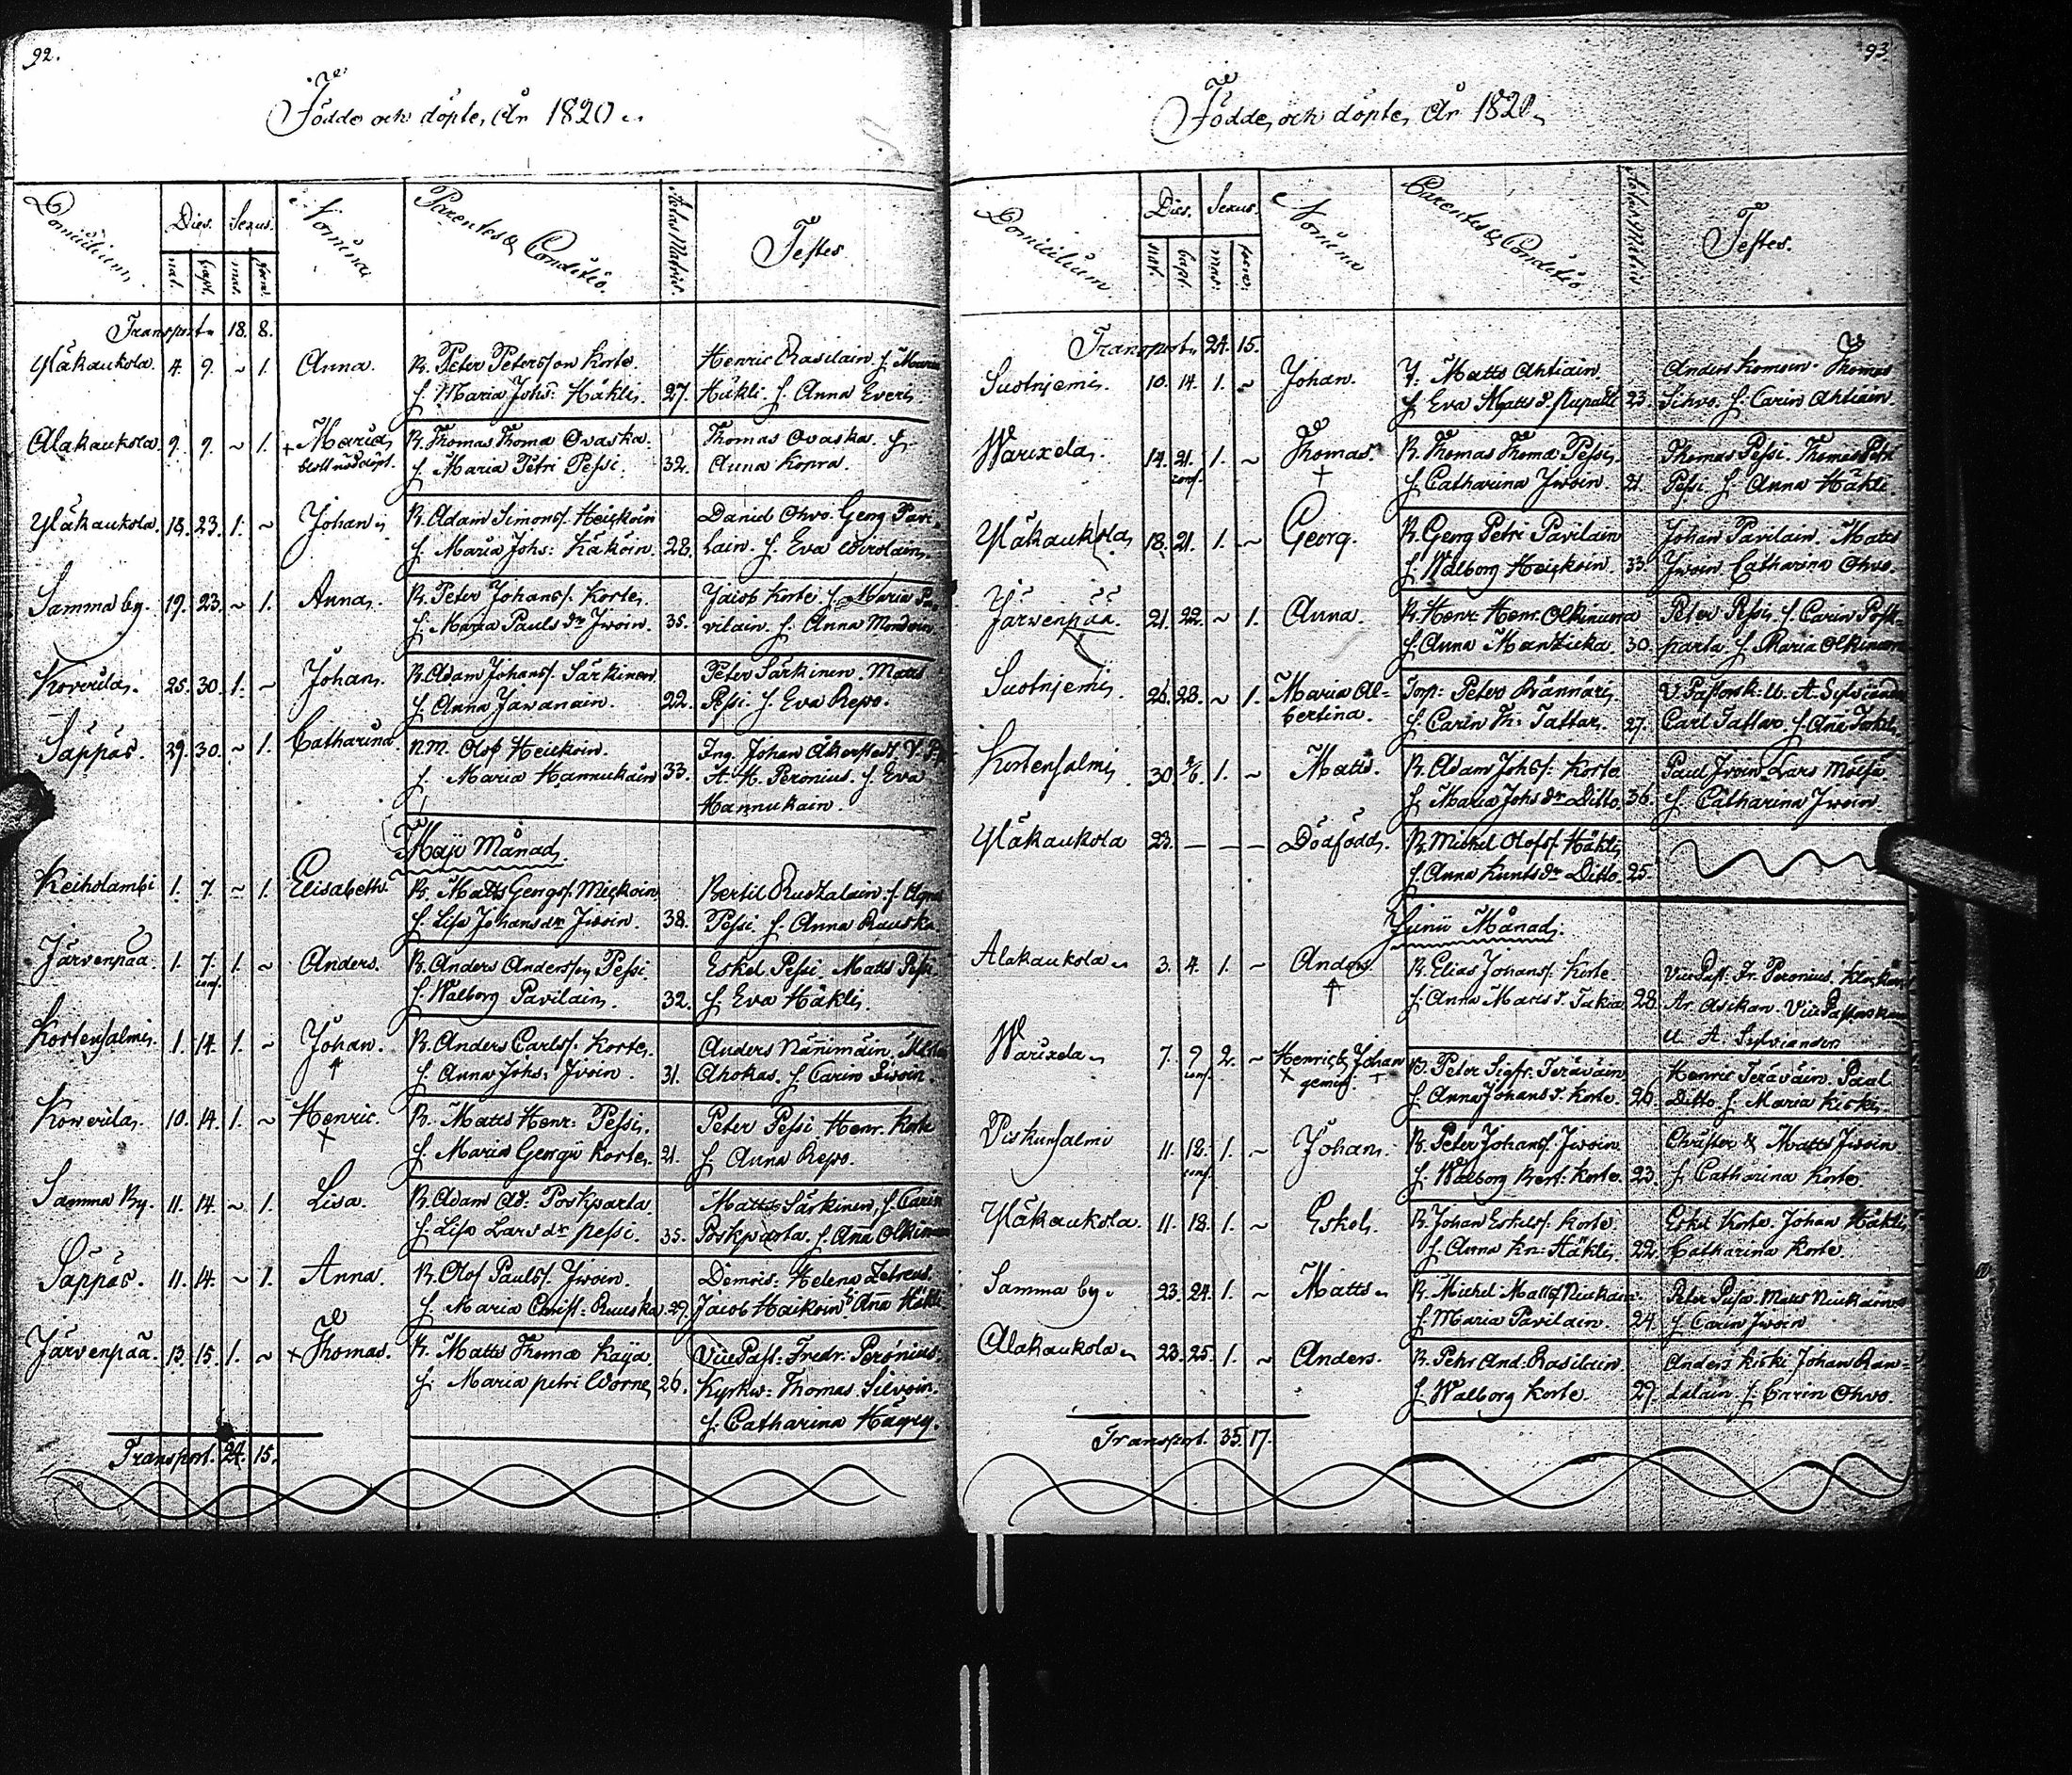 92.
Födde och döpte, År 1820.
Domicilium
Dies.
Sexus.
Nomina
Parentes & Conditio.
Aetas Matris.
Testes
nat.
bapt.
mas.
foem.
Transport. 18. 8.
Yläkaukola. 4. 9. ~ 1. Anna. B. Peter Petersson Korte. Henric Rasilain. h.
h. Maria Johs: Häkli. 27. Häkli. h. Anna Everi
Alakaukola. 9. 9. ~ 1. + Maria B. Thomas Thomæ Ovaska. Thomas Ovaska. h.
nöddöpt. h. Maria Petri Pessi. 32. Anna Kopra.
Yläkaukola. 18. 23. 1. ~ Johan B. Adam Simonss. Heickoin Daniel Ohvo. Georg Pavi
h. Maria Johs: Käköin. 28. lain. h. Eva
Samma by. 19. 23. ~ 1. Anna. B. Peter Johanss. Korte. Jacob Korte. h. Maria Pa
h. Maria Pauls dr Jwoin. 35. vilain. h. Anna
Koverila. 25. 30. 1. ~ Johan. B. Adam Johanss. Särkinen Peter Särkinen. Matts
h. Anna Jäwänäin. 22. Pessi. h. Eva Repo.
Säppäs. 29. 30. ~ 1. Catharina. N.M. Olof Heickoin. Ing. Johan Åkerstedt. V. P.
h. Maria Hannukain 33. A. H. Peronius. h. Eva
Hannukain.
Maji Månad.
Keiholambi 1. 7. ~ 1. Elisabeth. B. Matts Georgs. Mickoin Bertil Ruskalain. h.
h. Lisa Johansdr Jwoin. 38. Pessi. h. Anna Rauska.
Järvenpää. 1. 7. 1. ~ Anders. B. Anders Anderss. Pessi. Eskel Pessi. Matts Pessi
conf. h. Walborg Pavilain. 32. h. Eva Häkli.
Kortensalmi. 1. 14. 1. ~ Johan. B. Anders Carlss. Korte. Anders Nänimäin.
† h. Anna Johs: Jvoin. 31. Ahokas. h. Carin Jwoin.
Koverila. 10. 14. 1. ~ Henric. B. Matts Henr: Pessi. Peter Pessi. Henr. Korte
+ h. Maria Georgii Korte. 21. h. Anna Repo.
Samma By. 11. 14. ~ 1. Lisa. B. Adam Ad: Poskparta. Matts Särkinen. h. Carin
h. Lisa Lars dr Pessi. 35. Poskparta. h. Ana Olkinuora
Säppäs. 11. 14. ~ 1. Anna. B. Olof Paulss. Jwoin. Demois: Helena Zetreus.
h. Maria Christ: Rauska 29. Jacob Haikoin. h. Ana Häkli
Järvenpää. 13. 15. 1. ~ + Thomas. B. Matts Thomæ Kaija Vice Past: Fredr: Peronius.
h. Maria Petri Worne. 26. Kyrkw: Thomas Silvoin.
h. Catharina Häyry.
Transport. 24. 15.
93
Födde, och döpte, År 1820.
Domicilium
Dies.
Sexus.
Nomina
Parentes & Conditio
Aetas Matris
Testes.
nat.
bapt.
mas:
foem:
Transport. 24. 15.
Suotnjemi. 10. 14. 1. ~ Johan. Y. Matts Ahtiain Anders Komoin. Thomas
h. Eva Matts d. 23. Sihvo. h. Carin Ahtiain.
Warixela. 14. 21. 1. ~ Thomas B. Thomas Thomæ Pessi. Thomas Pessi. Thomas Petri
conf. + h. Catharina Jwoin. 21. Pessi h. Anna Häkli.
Yläkaukola 18. 21. 1. ~ Georg. B. Georg Petri Pavilain Johan Pavilain. Matts
h. Walborg Heickoin. 33. Jwoin Catharina Ohvo.
Järvenpää. 21. 22. ~ 1. Anna. B. Henr. Henr. Olkinuora Peter Pessi. h. Carin Posk
h. Anna Mantzicka. 30. parta h. Maria Olkinuora
Suotnjemi. 26. 28. ~ 1. Maria Al- Insp: Peter Brännäri V. Pastorsk: U. A. Sylviander
bertina. h. Carin Th: Tattar. 27. Carl Tattar h.
Kortensalmi 30. 4/6 1. ~ Matts. B. Adam Johss: Korte Paul Jvoin. Lars Mölsä
h. Maria Johs dr Ditto. 36. h. Catharina Jwoin.
Yläkaukola 23. — — — Dödfödd. B. Michel Olofss. Häkli
h. Anna Knuts dr Ditto. 25.
Junii Månad.
Alakaukola 3. 4. 1. ~ Anders B. Elias Johanss. Korte Vice Past. Fr. Peronius.
† h. Anna Matts d. Takia 28. Ar. Asikan. Vice Pastorskan
U. A. Sylviander
Warixela 7. 9. 2. ~ Henric & Johan B. Peter Sigfr. Teräväin Henric Teräväin. Paul
conf. + gemini + h. Anna Johans d. Korte. 26. Ditto. h. Maria Kiski
Piskunsalmi 11. 12. 1. ~ Johan. B. Peter Johanss. Jwoin. Christer & Matts Jwoin
conf. h. Walborg Bert: Korte. 23. h. Catharina Korte
Yläkaukola 11. 18. 1. ~ Eskel. B. Johan Eskelss. Korte Eskel Korte. Johan Häkli
h. Anna Kn: Häkli. 22. Catharina Korte
Samma by. 23. 24. 1. ~ Matts B. Michel Matss Niukain. Peter Matts
h. Maria Pavilain. 24. h. Carin Jwoin
Alakaukola 23. 25. 1. ~ Anders. B. Pehr And: Rasilain. Anders Kiski Johan Ran-
h. Walborg Korte. 29. talain. h. Carin Ohvo.
Transport. 35. 17.